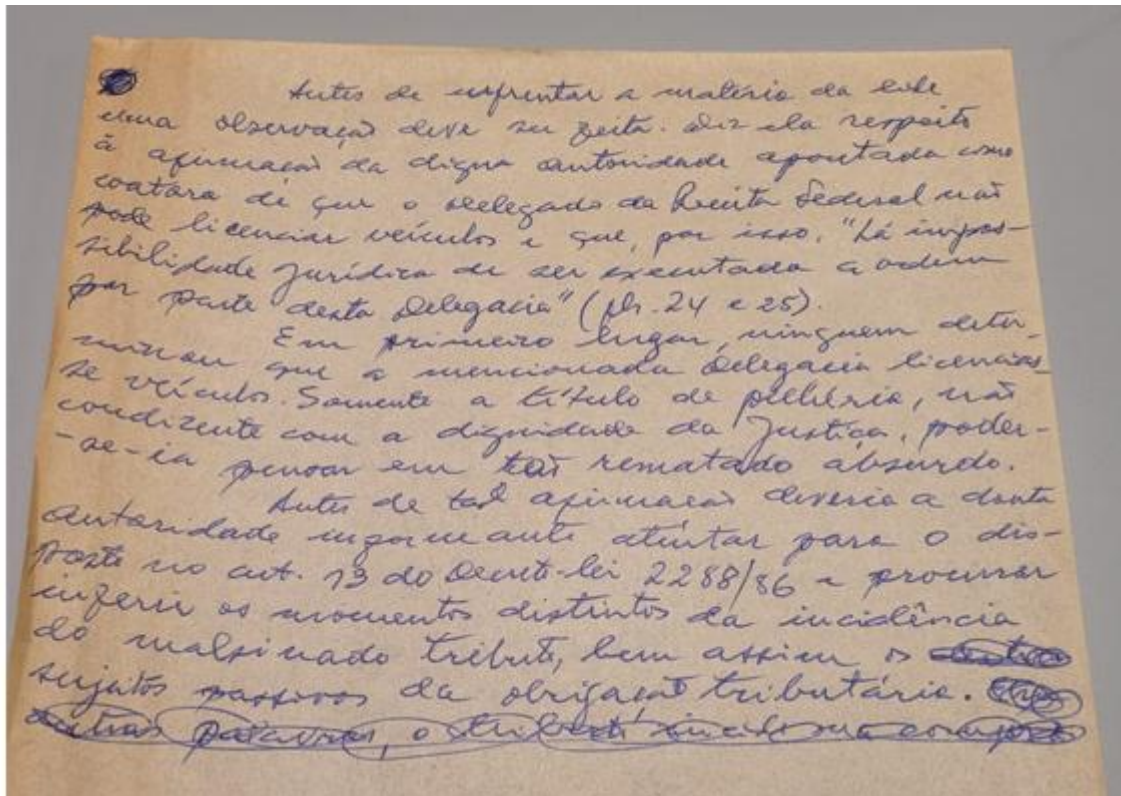 Antes de enfrentar a matéria da lide
uma observação deve ser feita. Diz ela respeito
à afirmação da digna autoridade apontada como
coatora de que o Delegado da Receita Federal não
pode licenciar veículos e que, por isso, "há impos-
sibilidade jurídica de ser executada a ordem
por parte desta Delegacia" (fls. 24 e 25).
Em primeiro lugar, ninguem deter-
minou que a mencionada Delegacia licencias-
se veículos. Somente a título de pilhéria, não
condizente com a dignidade da Justiça, poder-
-se-ia pensar em tal rematado absurdo.
Antes de tal afirmação deveria a douta
autoridade informante atentar para o dis-
posto no art. 13 do Decreto-lei 2288/86 e procurar
inferir os momentos distintos da incidência
do malsinado tributo, bem assim os
sujeitos passivos da obrigação tributária.
outras palavras, o tributo incide na compra